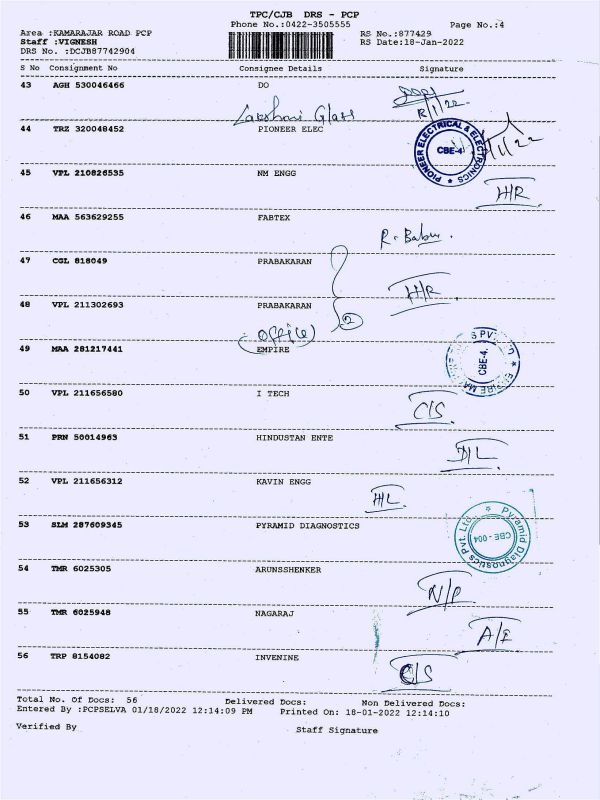 TPC/CJB DRS - PCP
Phone No.:0422-3505555
Page No.:4
Area :KAMARAJAR ROAD PCP
RS No.:877429
Staff :VIGNESH
RS Date:18-Jan-2022
DRS No. :DCJB87742904
S No Consignment No Consignee Details Signature
43 AGH 530046466 DO
Lakshmi Glass
44 TRZ 320048452 PIONEER ELEC
PIONEER ELECTRICAL & ELECTRONICS
CBE-4
45 VPL 210826535 NM ENGG
H/R
46 MAA 563629255 FABTEX
R. Babu.
47 CGL 818049 PRABAKARAN
H/R
48 VPL 211302693 PRABAKARAN
2
office
49 MAA 281217441 EMPIRE
CBE-4.
50 VPL 211656580 I TECH
C/S
51 PRN 50014963 HINDUSTAN ENTE
D/L
52 VPL 211656312 KAVIN ENGG
H/L
53 SLM 287609345 PYRAMID DIAGNOSTICS
Pyramid Diagnostics Pvt. Ltd.
CBE - 004
54 TMR 6025305 ARUNSSHENKER
N/P
55 TMR 6025948 NAGARAJ
A/E
56 TRP 8154082 INVENINE
C/S
Total No. Of Docs: 56 Delivered Docs: Non Delivered Docs:
Entered By :PCPSELVA 01/18/2022 12:14:09 PM Printed On: 18-01-2022 12:14:10
Verified By Staff Signature